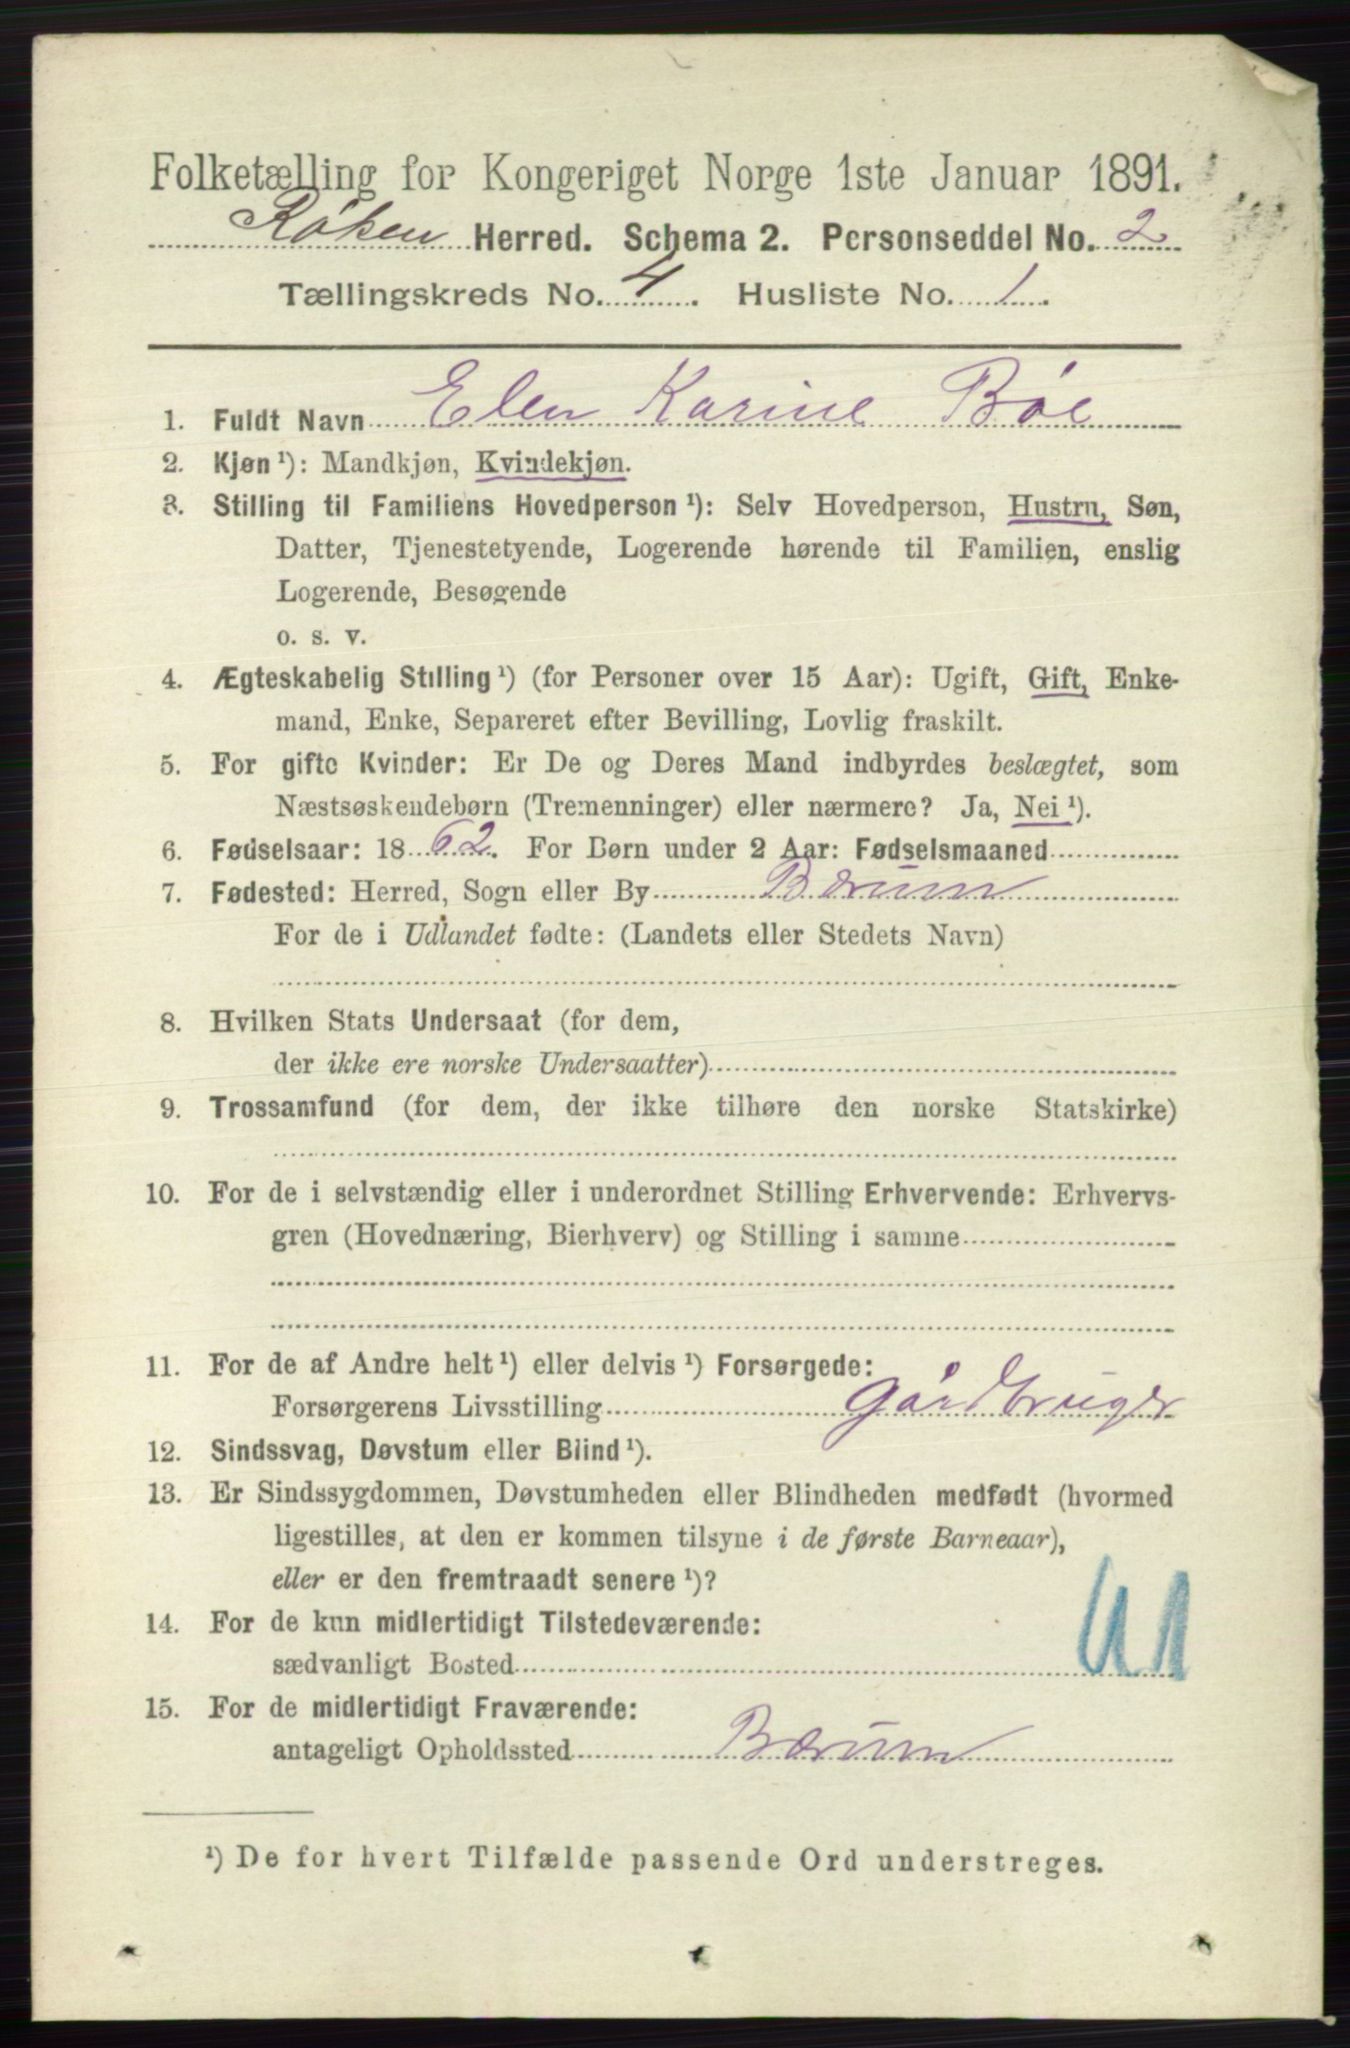 Folketælling for Kongeriget Norge 1ste Januar 1891.
Røken Herred. Schema 2. Personseddel No. 2
Tællingskreds No. 4. Husliste No. 1.
1. Fuldt Navn Elen Karine Bøe
2. Kjøn ¹): Mandkjøn, Kvindekjøn.
3. Stilling til Familiens Hovedperson ¹): Selv Hovedperson, Hustru, Søn,
Datter, Tjenestetyende, Logerende hørende til Familien, enslig
Logerende, Besøgende
o. s. v.
4. Ægteskabelig Stilling ¹) (for Personer over 15 Aar): Ugift, Gift, Enke-
mand, Enke, Separeret efter Bevilling, Lovlig fraskilt.
5. For gifte Kvinder: Er De og Deres Mand indbyrdes beslægtet, som
Næstsøskendebørn (Tremenninger) eller nærmere? Ja, Nei ¹).
6. Fødselsaar: 1862. For Børn under 2 Aar: Fødselsmaaned
7. Fødested: Herred, Sogn eller By Bærum
For de i Udlandet fødte: (Landets eller Stedets Navn)
8. Hvilken Stats Undersaat (for dem,
der ikke ere norske Undersaatter)
9. Trossamfund (for dem, der ikke tilhøre den norske Statskirke)
10. For de i selvstændig eller i underordnet Stilling Erhvervende: Erhvervs-
gren (Hovednæring, Bierhverv) og Stilling i samme
11. For de af Andre helt ¹) eller delvis ¹) Forsørgede:
Forsørgerens Livsstilling Gårdbruger
12. Sindssvag, Døvstum eller Blind ¹).
13. Er Sindssygdommen, Døvstumheden eller Blindheden medfødt (hvormed
ligestilles, at den er kommen tilsyne i de første Barneaar),
eller er den fremtraadt senere ¹)?
14. For de kun midlertidigt Tilstedeværende:
sædvanligt Bosted
15. For de midlertidigt Fraværende:
antageligt Opholdssted Bærum
¹) De for hvert Tilfælde passende Ord understreges.